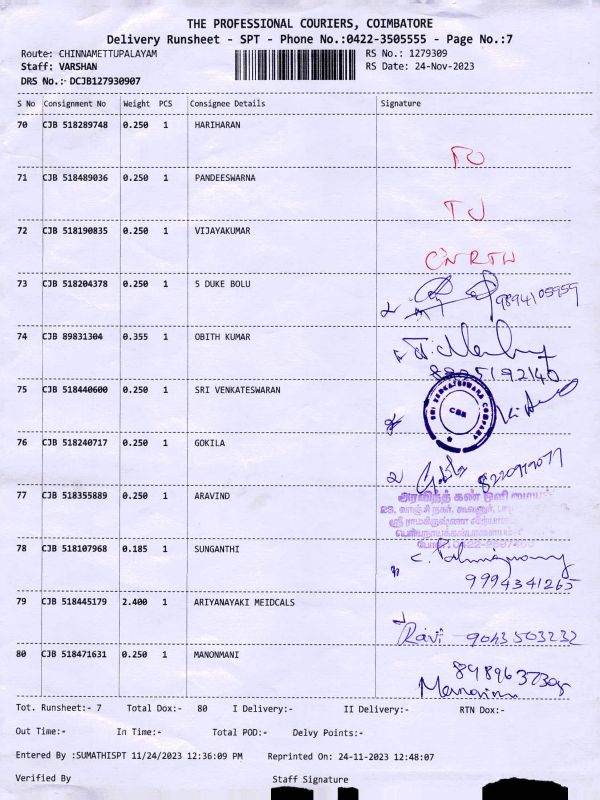 THE PROFESSIONAL COURIERS, COIMBATORE
Delivery Runsheet - SPT - Phone No.:0422-3505555 - Page No.:7
Route: CHINNAMETTUPALAYAM RS No.: 1279309
Staff: VARSHAN RS Date: 24-Nov-2023
DRS No.:- DCJB127930907
S No Consignment No Weight PCS Consignee Details Signature
70 CJB 518289748 0.250 1 HARIHARAN
71 CJB 518489036 0.250 1 PANDEESWARNA
72 CJB 518190835 0.250 1 VIJAYAKUMAR
73 CJB 518204378 0.250 1 5 DUKE BOLU
9894105959
74 CJB 89831304 0.355 1 OBITH KUMAR
75 CJB 518440600 0.250 1 SRI VENKATESWARAN
SRI VENKATESHWARA COMPANY
CBE
76 CJB 518240717 0.250 1 GOKILA
77 CJB 518355889 0.250 1 ARAVIND
அரவிந்த் கண் ஒளி மையம்
78 CJB 518107968 0.185 1 SUNGANTHI
9994341265
79 CJB 518445179 2.400 1 ARIYANAYAKI MEIDCALS
Ravi 9043503232
80 CJB 518471631 0.250 1 MANONMANI
Tot. Runsheet:- 7 Total Dox:- 80 I Delivery:- II Delivery:- RTN Dox:-
Out Time:- In Time:- Total POD:- Delvy Points:-
Entered By :SUMATHISPT 11/24/2023 12:36:09 PM Reprinted On: 24-11-2023 12:48:07
Verified By Staff Signature